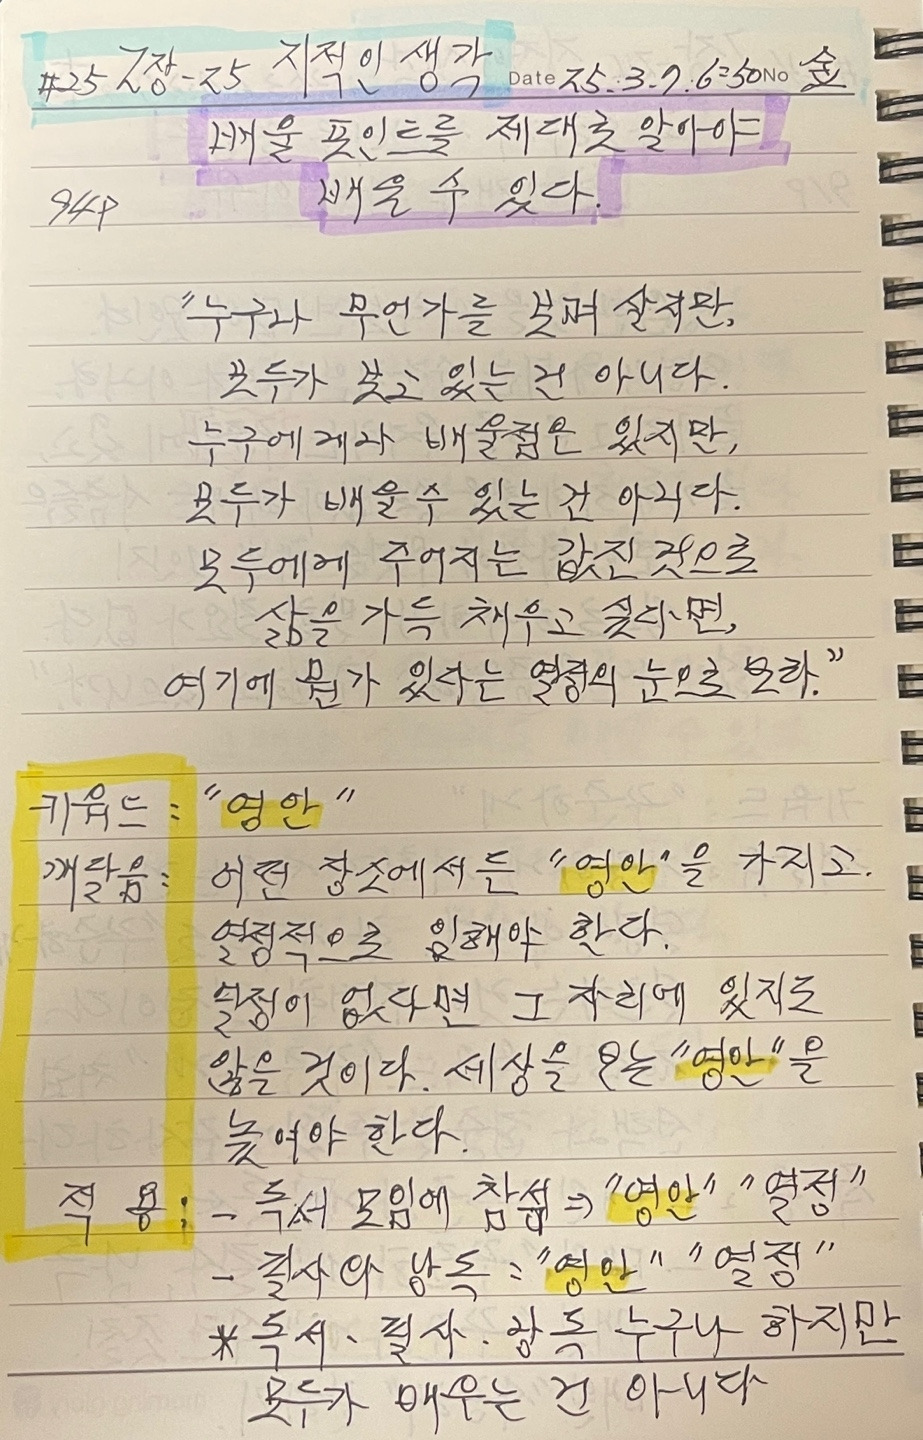 #25 2장-25 지적인 생각 Date 25.3.7.6:50 No 金
배울 포인트를 제대로 알아야
94P 배울 수 있다.
"누구나 무언가를 보며 살지만,
모두가 보고 있는 건 아니다.
누구에게나 배울점은 있지만,
모두가 배울 수 있는 건 아니다.
모두에게 주어지는 값진 것으로
삶을 가득 채우고 싶다면,
여기에 뭔가 있다는 열정의 눈으로 보라."
키워드: "영안"
깨달음: 어떤 장소에서든 "영안"을 가지고.
열정적으로 임해야 한다.
열정이 없다면 그 자리에 있지도
않을 것이다. 세상을 보는 "영안"을
높여야 한다.
적용: - 독서 모임에 참석 ⇒ "영안" "열정"
- 필사와 낭독: "영안" "열정"
* 독서·필사·낭독 누구나 하지만
모두가 배우는 건 아니다